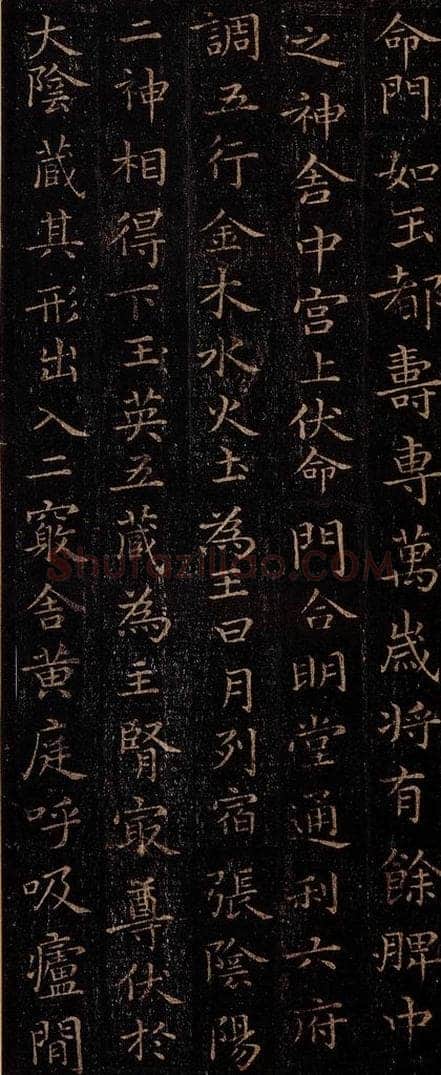 命門如玉都壽專萬歲將有餘脾中
之神舍中宮上伏命門合明堂通利六府
調五行金木水火土為王日月列宿張陰陽
二神相得下玉英五藏為主腎冣尊伏於
大陰藏其形出入二竅舍黄庭呼吸廬間
Shufaziliao.COM